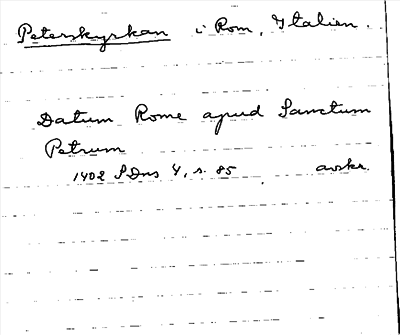 Peterskyrkan i Rom, Italien.
Datum Rome apud Sanctum
Petrum
1402 SDns 4, s. 85 avskr.